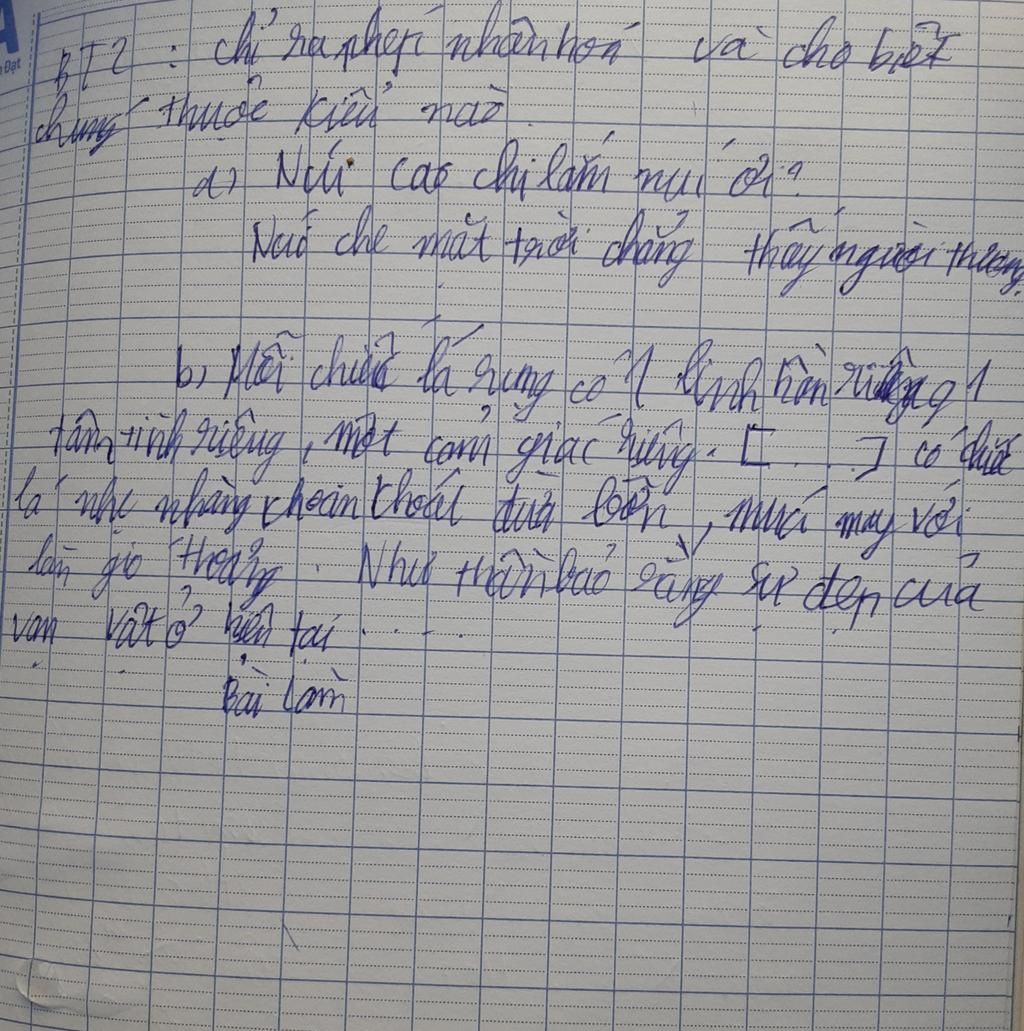 Đạt
BT2 : chỉ ra phép nhân hoá và cho biết
chúng thuộc kiểu nào.
a) Núi cao chi lắm núi ơi?
Núi che mặt trời chẳng thấy người thương.
b, Mỗi chiếc lá rụng có 1 linh hồn riêng 1
tâm tình riêng, một cảm giác riêng. [ . . . ] có chiếc
lá nhẹ nhàng khoan khoái đùa bỡn, múa may với
làn gió thoảng. Như thầm bảo rằng sự đẹp của
vạn vật ở hiện tại . . . .
Bài làm